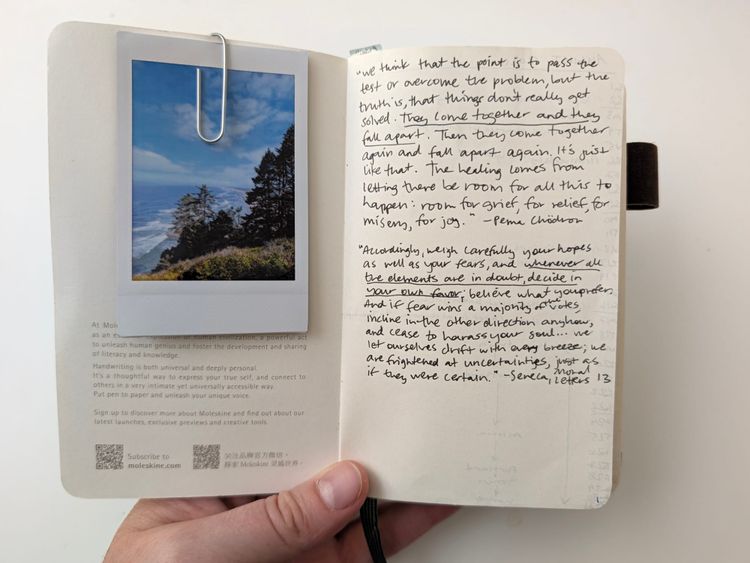 At Mole
as an e
to unleash human genius and foster the development and sharing
of literacy and knowledge.
Handwriting is both universal and deeply personal.
It's a thoughtful way to express your true self, and connect to
others in a very intimate yet universally accessible way.
Put pen to paper and unleash your unique voice.
Sign up to discover more about Moleskine and find out about our
latest launches, exclusive previews and creative tools.
Subscribe to
moleskine.com
关注品牌官方微信，
探索 Moleskine 灵感世界。
"We think that the point is to pass the
test or overcome the problem, but the
truth is, that things don't really get
solved. They come together and they
fall apart. Then they come together
again and fall apart again. It's just
like that. The healing comes from
letting there be room for all this to
happen: room for grief, for relief, for
misery, for joy." -Pema Chödron
"Accordingly, weigh carefully your hopes
as well as your fears, and whenever all
the elements are in doubt, decide in
your own favor; believe what you prefer.
And if fear wins a majority of the votes,
incline in the other direction anyhow,
and cease to harass your soul... we
let ourselves drift with every breeze; we
are frightened at uncertainties, just as
if they were certain." -Seneca, Moral
Letters 13